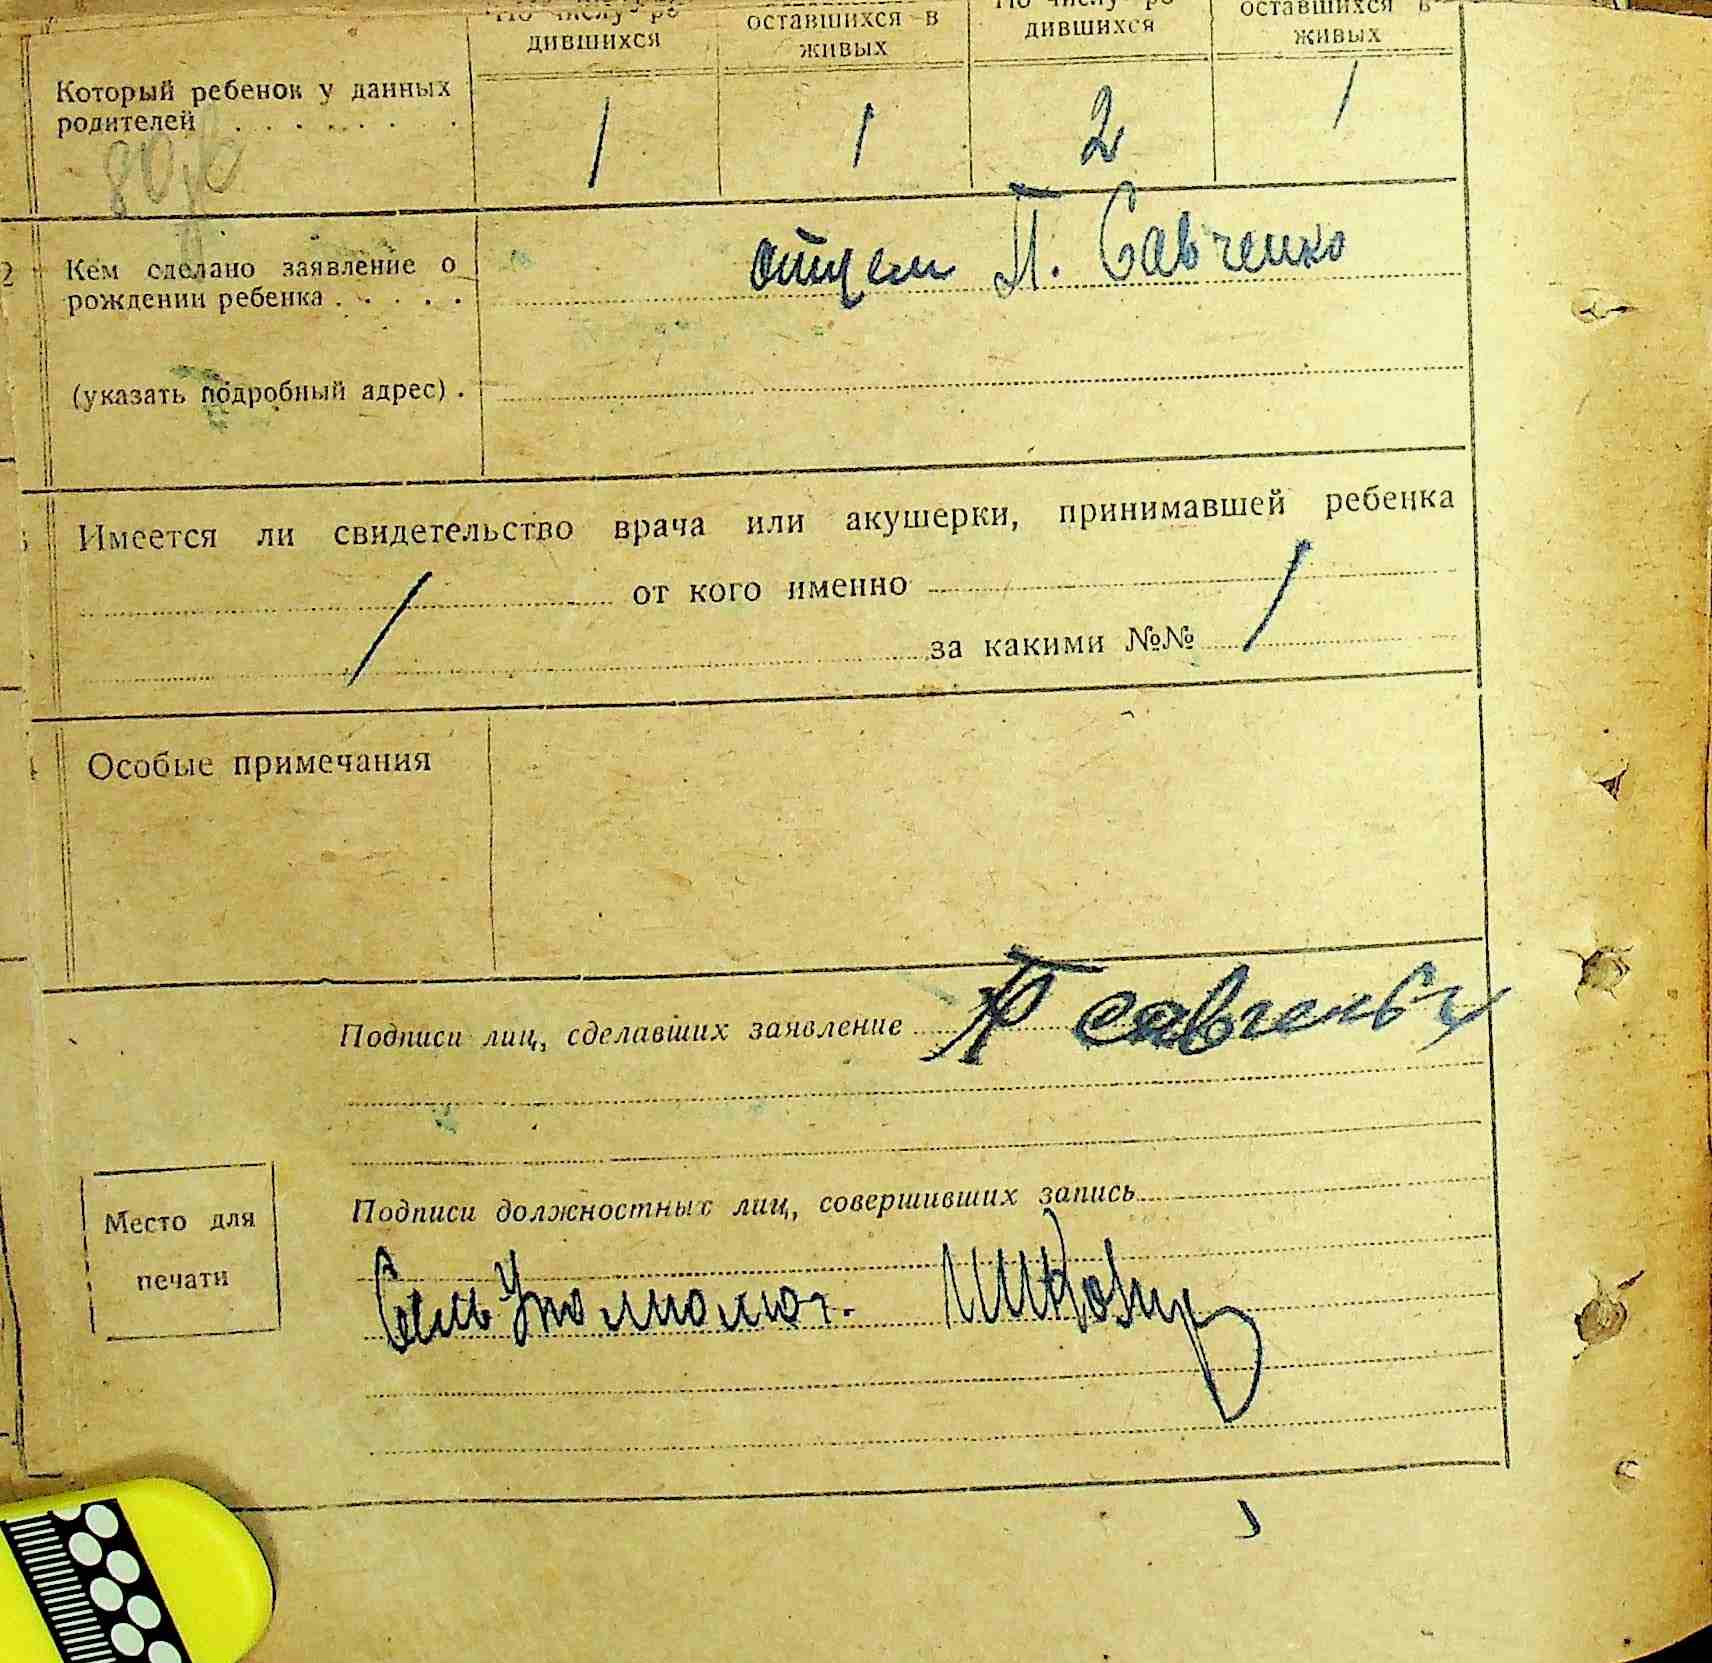 По числу ро- оставшихся в По числу ро- оставшихся в
дившихся живых дившихся живых
Который ребенок у данных
родителей . . . . . . . 1 1 2 1
2 Кем сделано заявление о отцем П. Савченко
рождении ребенка . . . . .
(указать подробный адрес) .
Имеется ли свидетельство врача или акушерки, принимавшей ребенка
/ от кого именно
за какими №№ /
Особые примечания
Подписи лиц, сделавших заявление П Савченко
Подписи должностных лиц, совершивших запись
Место для
печати